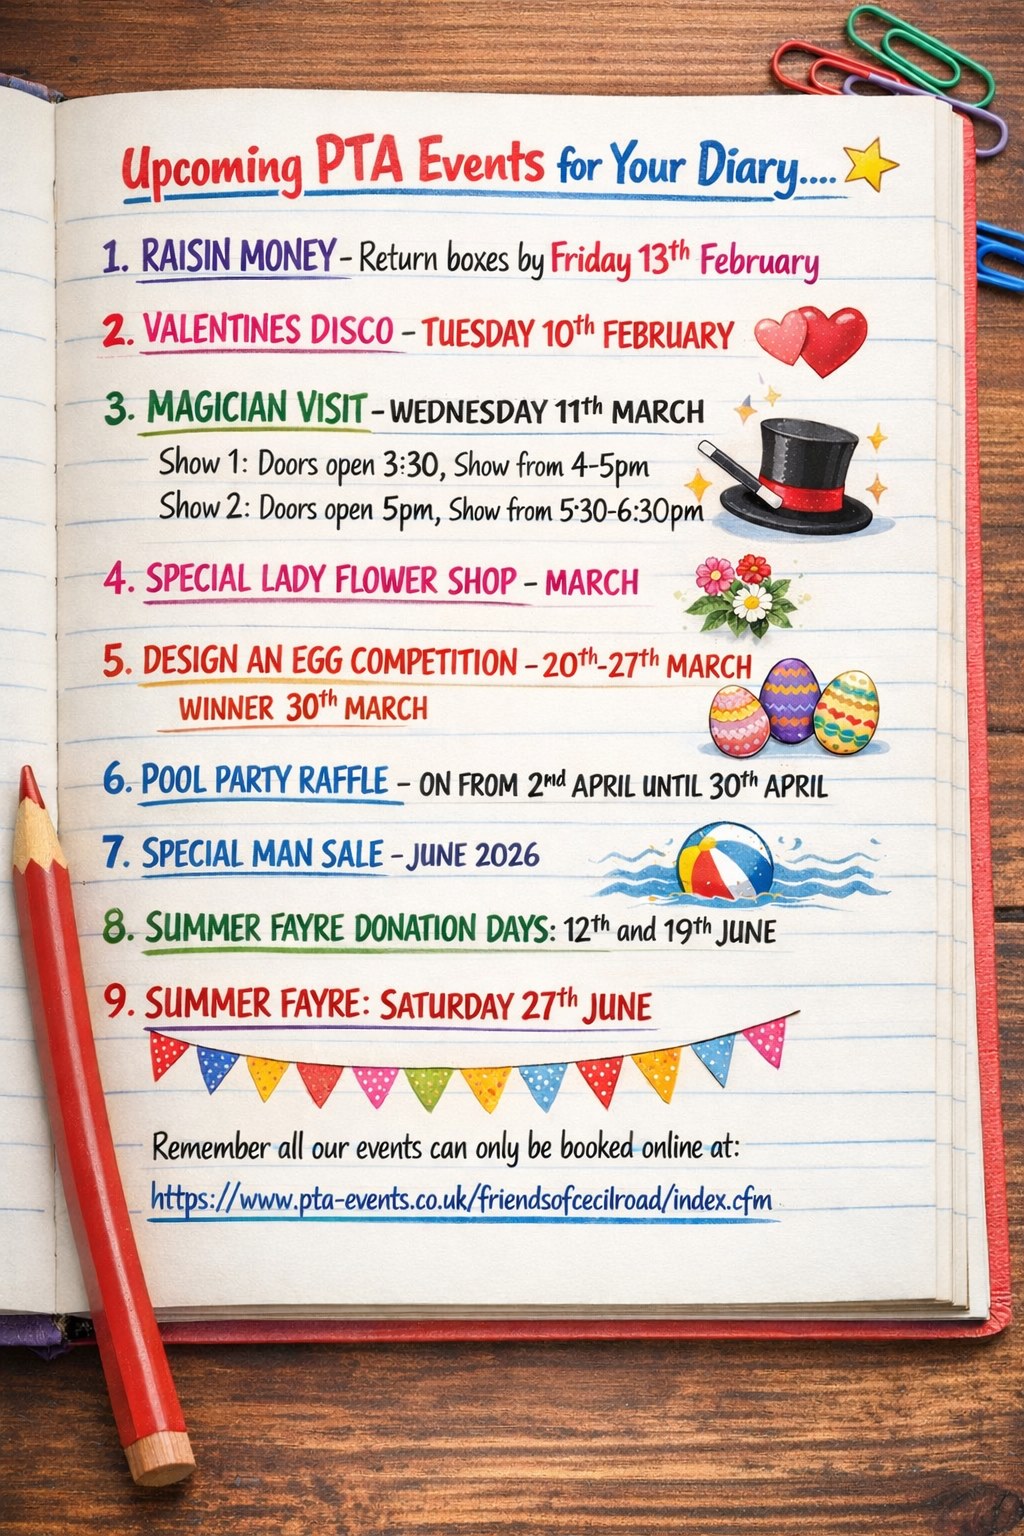 Upcoming PTA Events for Your Diary....
1. RAISIN MONEY - Return boxes by Friday 13th February
2. VALENTINES DISCO - TUESDAY 10th FEBRUARY
3. MAGICIAN VISIT - WEDNESDAY 11th MARCH
Show 1: Doors open 3:30, Show from 4-5pm
Show 2: Doors open 5pm, Show from 5:30-6:30pm
4. SPECIAL LADY FLOWER SHOP - MARCH
5. DESIGN AN EGG COMPETITION - 20th-27th MARCH
WINNER 30th MARCH
6. POOL PARTY RAFFLE - ON FROM 2nd APRIL UNTIL 30th APRIL
7. SPECIAL MAN SALE - JUNE 2026
8. SUMMER FAYRE DONATION DAYS: 12th and 19th JUNE
9. SUMMER FAYRE: SATURDAY 27th JUNE
Remember all our events can only be booked online at:
https://www.pta-events.co.uk/friendsofcecilroad/index.cfm